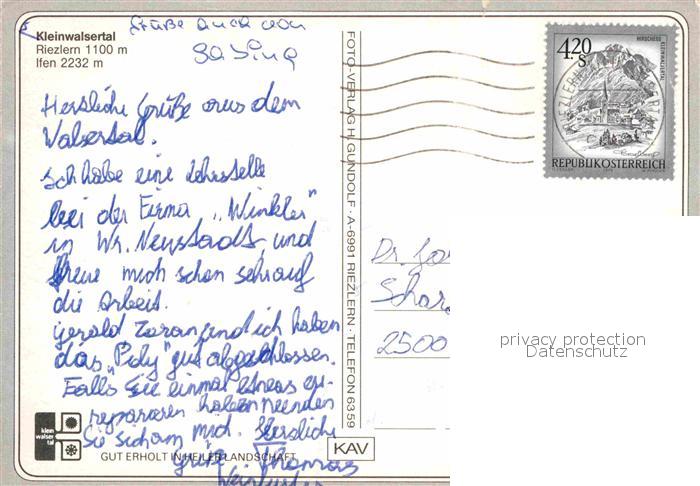 Kleinwalsertal
Riezlern 1100 m
Ifen 2232 m
Grüße auch von
Sabina
Herzliche Grüße aus dem
Walsertal.
Ich habe eine Lehrstelle
bei der Firma „Winkler"
in Wr. Neustadt, und
freue mich schon sehr auf
die Arbeit.
Gerald und ich haben
das „Poly" gut abgeschlossen.
Falls Sie einmal etwas
reparieren haben
Sie sich an mich. Herzliche
Grüße Thomas
klein
walser
tal
GUT ERHOLT IN HEILER LANDSCHAFT
KAV
FOTO-VERLAG H. GUNDOLF · A-6991 RIEZLERN · TELEFON 6359
4.20
S
HIRSCHEGG
KLEINWALSERTAL
REPUBLIK ÖSTERREICH
RIEZLERN
Dr.
2500
privacy protection
Datenschutz